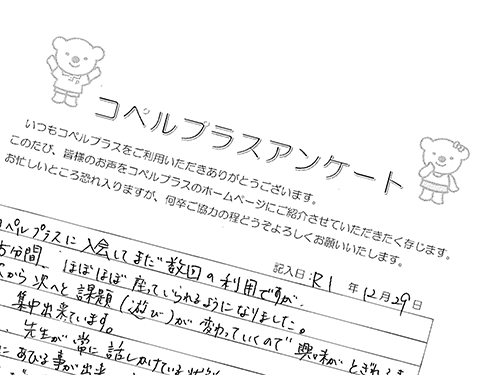 コペルプラスアンケート
いつもコペルプラスをご利用いただきありがとうございます。
このたび、皆様のお声をコペルプラスのホームページにご紹介させていただきたく存じます。
お忙しいところ恐れ入りますが、何卒ご協力の程どうぞよろしくお願いいたします。
記入日:R1 年 12月 29日
コペルプラスに入会してまだ数回の利用ですが、
分間、ほぼほぼ座っていられるようになりました。
から次へと課題(遊び)が変わっていくので興味がとぎれ
集中出来ています。
先生が常に話しかけている
にあびる事が出来